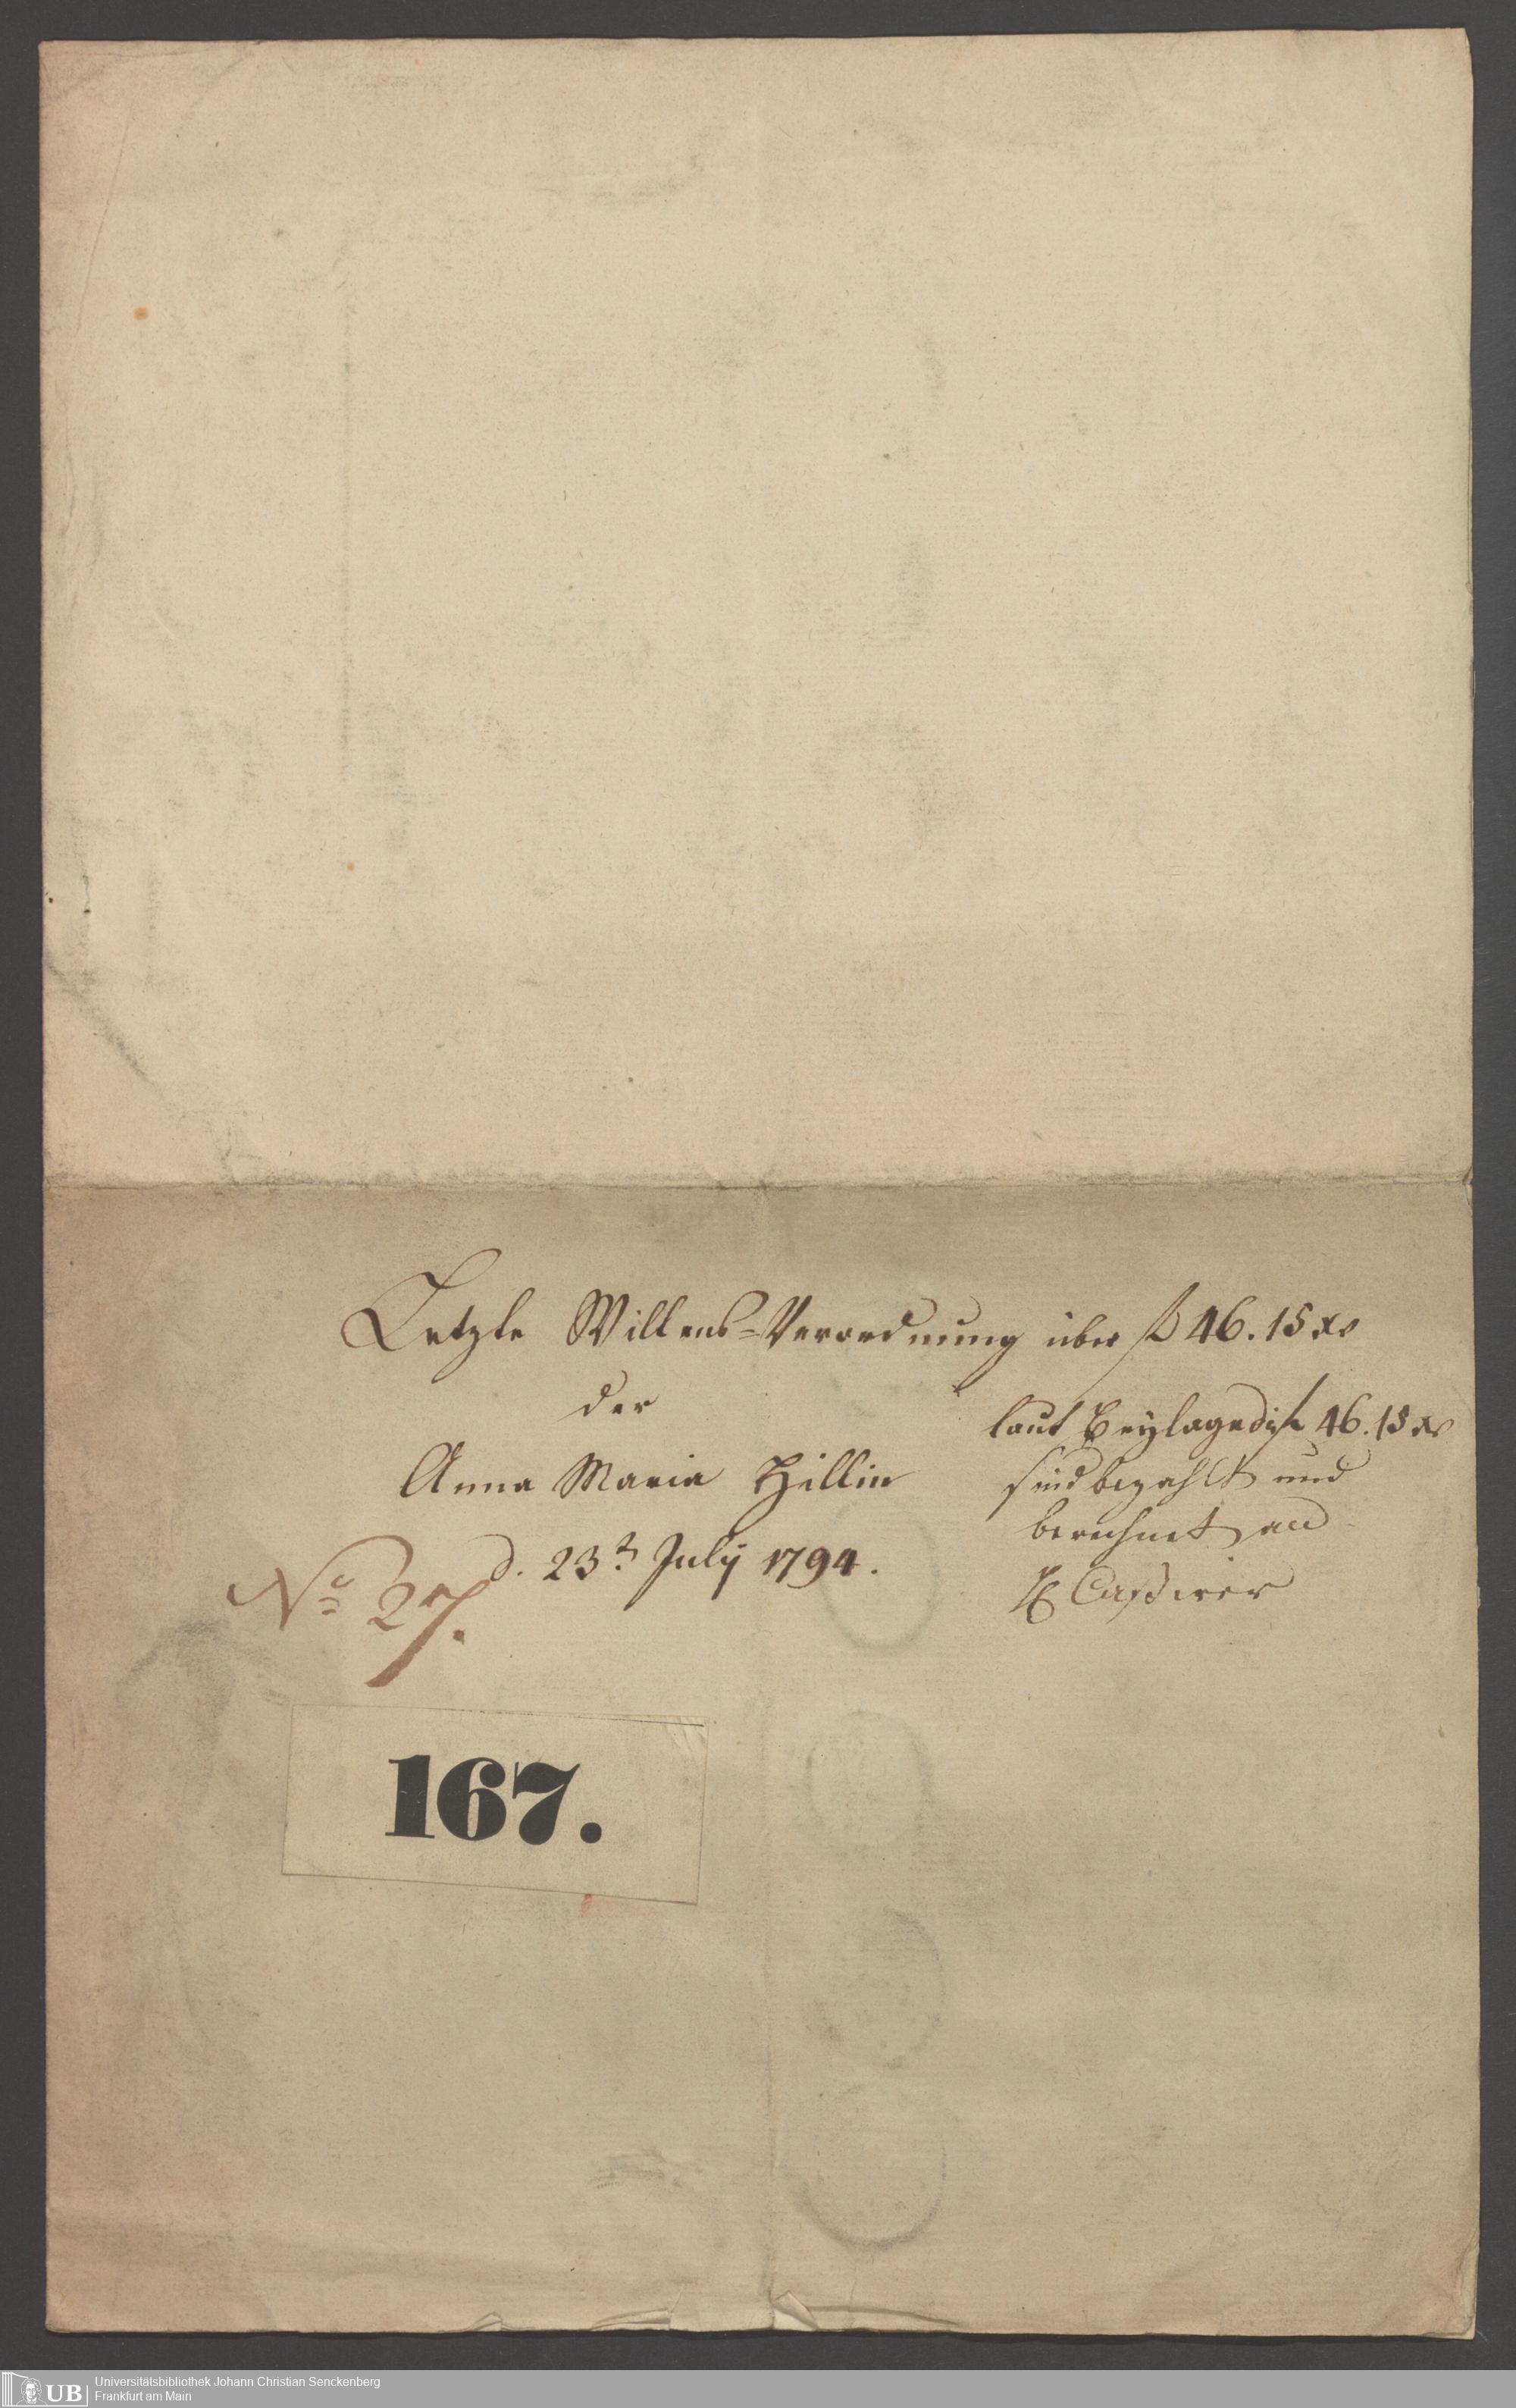 Letzte Willens=Verordnung über fl 46. 15 xr
der
Anna Maria Hillin
d. 23t July 1794.
No 27.
laut Beylage di fl 46. 15 xr
sind bezahlt und
berechnet an
Cassirer
167.
UB
Universitätsbibliothek Johann Christian Senckenberg
Frankfurt am Main